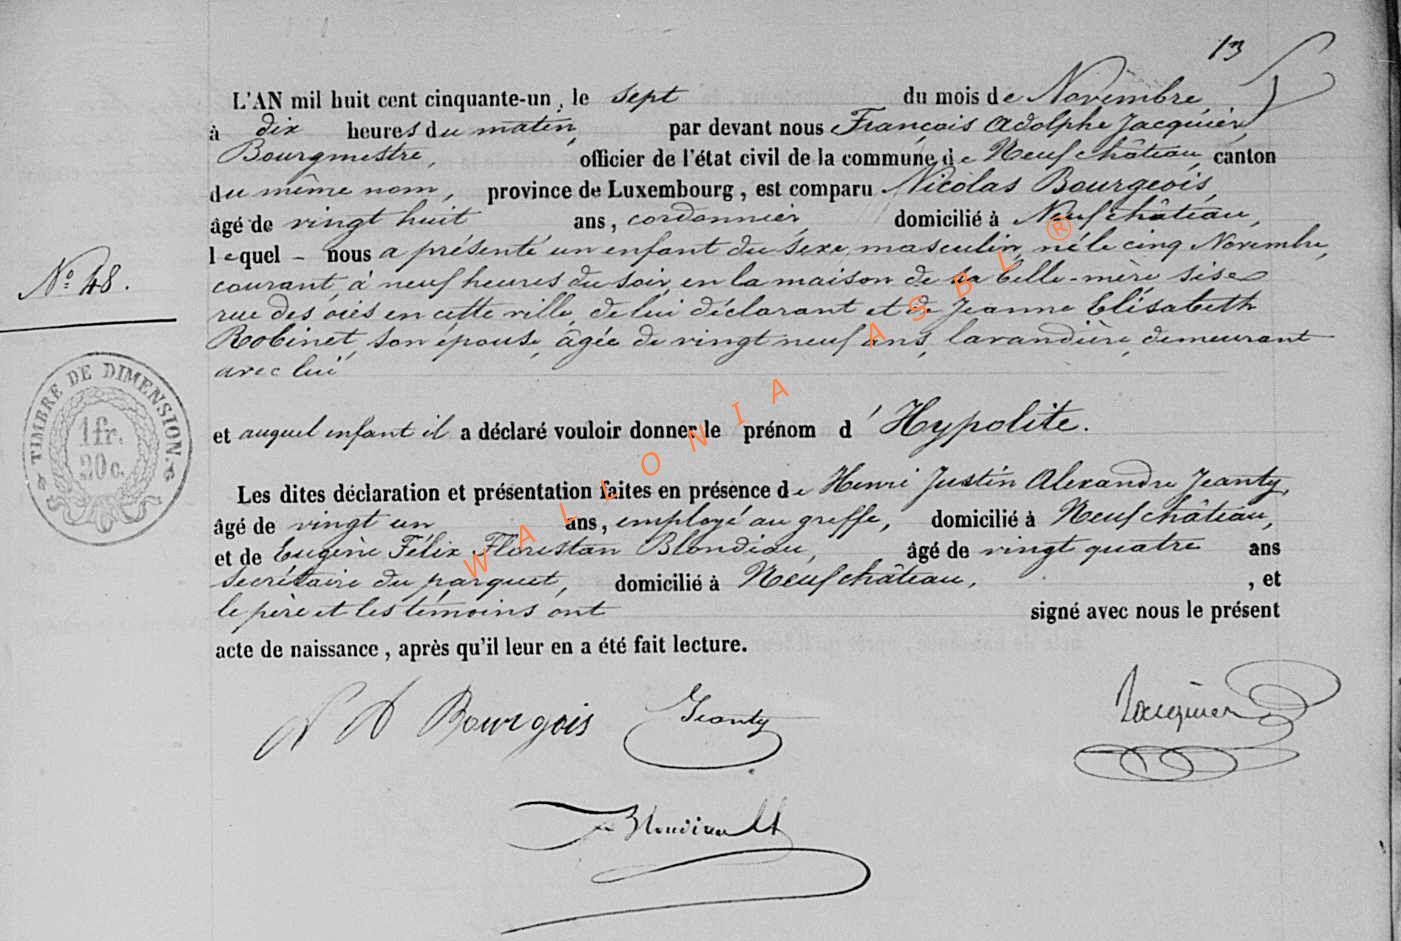 13
L'AN mil huit cent cinquante-un, le sept du mois de Novembre,
à dix heures du matin, par devant nous François Adolphe Jacquier,
Bourgmestre, officier de l'état civil de la commune de Neufchâteau, canton
du même nom, province de Luxembourg, est comparu Nicolas Bourgeois,
âgé de vingt huit ans, cordonnier, domicilié à Neufchâteau,
lequel - nous a présenté un enfant du sexe masculin, né le cinq Novembre,
N° 48.
courant, à neuf heures du soir, en la maison de sa belle-mère sise
rue des oies en cette ville, de lui déclarant et de Jeanne Elisabeth
Robinet, son épouse, âgée de vingt neuf ans, lavandière, demeurant
avec lui
TIMBRE DE DIMENSION.
1fr.
20c.
et auquel enfant il a déclaré vouloir donner le prénom d'Hypolite.
Les dites déclaration et présentation faites en présence de Henri Justin Alexandre Jeanty,
âgé de vingt un ans, employé au greffe, domicilié à Neufchâteau,
et de Eugène Félix Floristan Blondiau, âgé de vingt quatre ans
secrétaire du parquet, domicilié à Neufchâteau, , et
le père et les témoins ont signé avec nous le présent
acte de naissance, après qu'il leur en a été fait lecture.
Bourgois Jeanty Jacquier
WALLONIA ASBL ®